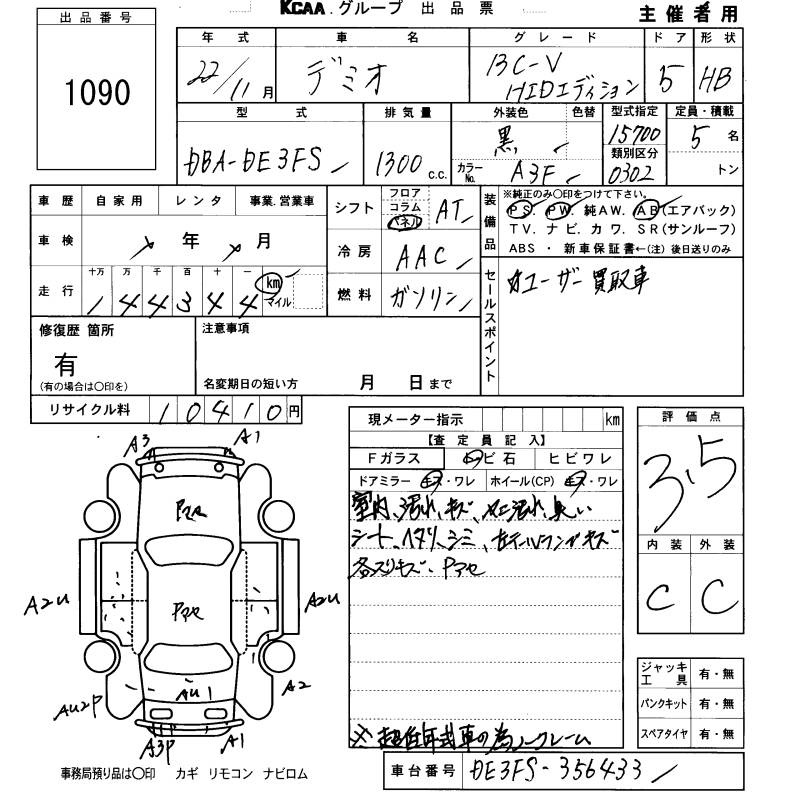 KCAA.グループ 出品票
主催者用
出品番号
1090
年式 車名 グレード ドア 形状
22/11月 デミオ 13C-V HIDエディション 5 HB
型式 排気量 外装色 色替 型式指定 定員・積載
DBA-DE3FS 1300c.c. 黒 15700 5名
カラーNo. A3F 類別区分 0302 トン
車歴 自家用 レンタ 事業.営業車
シフト フロア コラム パネル AT
装備品 ※純正のみ○印をつけて下さい。
PS. PW. 純AW. AB(エアバック)
TV. ナビ. カワ. SR(サンルーフ)
ABS ・ 新車保証書←(注) 後日送りのみ
車検 年 月
冷房 AAC
走行 十万 万 千 百 十 一
144344 km マイル
燃料 ガソリン
セールスポイント
ユーザー買取車
修復歴 箇所
有
(有の場合は○印を)
注意事項
名変期日の短い方 月 日まで
リサイクル料 10410円
現メーター指示 km
【査定員記入】
Fガラス トビ石 ヒビワレ
ドアミラー キズ・ワレ ホイール(CP) キズ・ワレ
室内、汚れ、キズ、 汚れ、臭い
シート、ヘタリ、シミ、 テールランプキズ
各スリキズ、Pアセ
※ 超低年式車の為ノークレーム
評価点
3.5
内装 外装
C C
A3 A1
Pアセ
A2U A2U
Pアセ
AU2P AU1 A2
A3P A1
ジャッキ工具 有・無
パンクキット 有・無
スペアタイヤ 有・無
事務局預り品は○印 カギ リモコン ナビロム
車台番号 DE3FS-356433